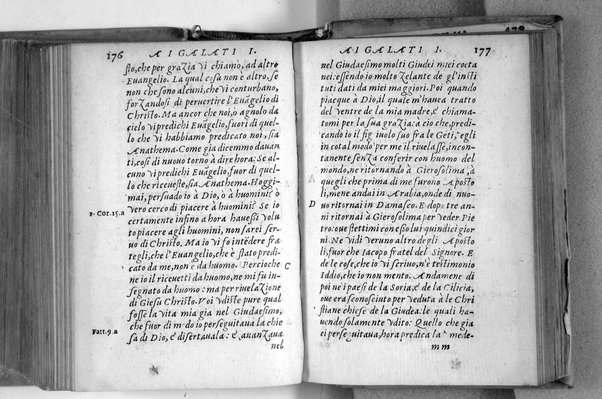 176 AI GALATI I.
sto, che per grazia vi chiamò, ad altro
Euangelio. La qual cosà non è altro, se
non che sono alcuni, che vi conturbano,
forzandosi di peruertire l'Euāgelio di
Christo. Ma ancor che noi, ò agnolo da
cielo vi predichi Euāgelio, fuori di quel-
lo che vi habbiamo predicato noi, sia
Anathema. Come già dicemmo dauan
ti, cosi di nuouo torno à dire hora: Se al-
cuno vi predichi Euāgelio, fuor di quel-
lo che riceueste, sia Anathema. Hoggi-
mai, persuado io à Dio, ò à huomini? ò
vero cerco di piacere à huomini? Se io
1. Cor. 15. a
certamente infino à hora hauessi volu
to piacere agli huomini, non sarei ser-
uo di Christo. Ma io vi fo intēdere fra
tegli, che l'Euangelio, che è stato predi-
cato da me, non è da huomo. Percioche
C
ne io il riceuetti da huomo, ne mi fu in-
segnato da huomo: ma per riuelazione
di Giesu Christo. Voi vdiste pure qual
fosse la vita mia gia nel Giudaesimo,
che fuor di modo perseguitaua la chie
Fatt. 9. a
sa di Dio, e disertauala: e auanzaua
nel
AI GALATI I. 177
nel Giudaesimo molti Giudei miei coeta
nei: essendo io molto Zelante de gl'insti
tuti dati da miei maggiori. Poi quando
piacque à Dio, il quale m'haueua tratto
del ventre de la mia madre, e chiama-
tomi per la sua grazia: a cio che, predi-
cando io il figliuolo suo fra le Geti, egli
in cotal modo per me il riuelasse, incon-
tanente senza conferir con huomo del
mondo, ne ritornando à Gierosolima, à
quegli che prima di me furono Aposto
li, mene andai in Arabia, onde di nuo-
D
uo ritornai in Damasco. E dopo tre an-
ni ritornai à Gierosolima per veder Pie
tro: oue stettimi con esso lui quindici gior
ni. Ne vidi veruno altro degli Aposto
li, fuor che Iacopo fratel del Signore. E
de le cose, che io vi scriuo, n'è testimonio
Iddio, che io non mento. Andamene di
poi ne i paesi de la Soria, e de la Cilicia,
oue era sconosciuto per veduta à le Chri
stiane chiese de la Giudea: le quali ha-
uendo solamente vdito: Quello che gia
ci perseguitaua, hora predica la mede-
mm